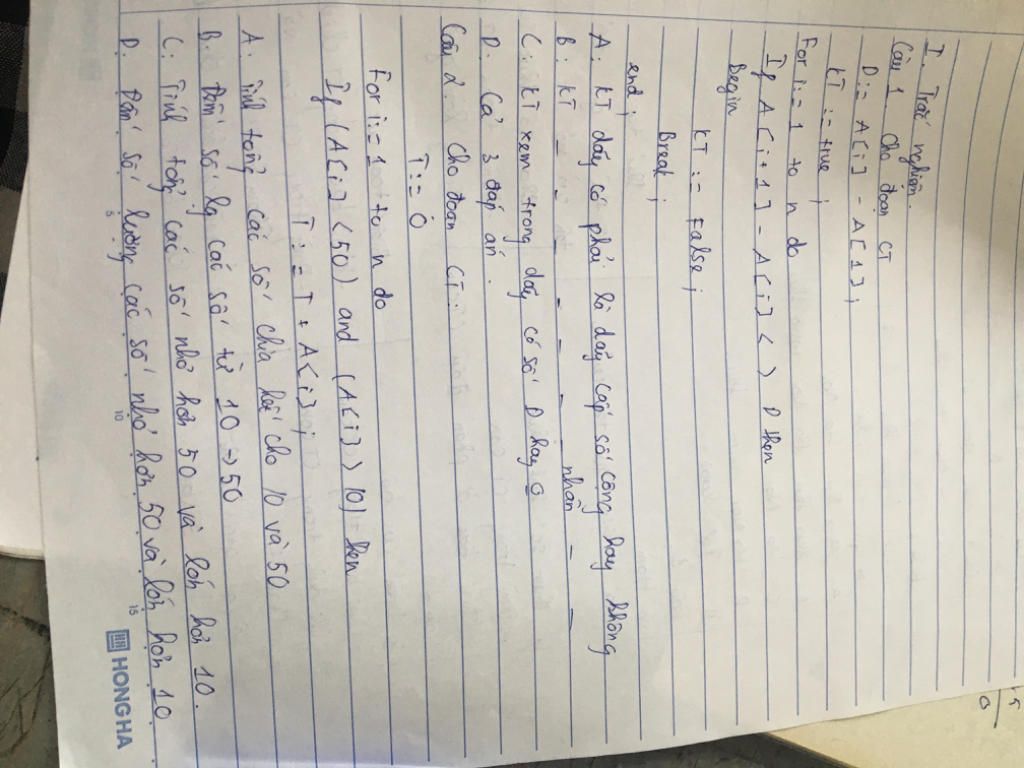 I. Trắc nghiệm.
Câu 1. Cho đoạn CT
D := A[i] - A[1];
KT := true;
For i:= 1 to n do
If A[i+1] - A[i] < > D then
Begin
KT := False;
Break;
end;
A: KT dãy có phải là dãy cấp số cộng hay không
B: KT _ _ _ _ _ _ nhân _ _
C: KT xem trong dãy có số D hay o
D: Cả 3 đáp án.
Câu 2. Cho đoạn CT:
T := 0
For i:= 1 to n do
If (A[i] < 50) and (A[i] > 10) then
T := T + A[i];
A: Tính tổng các số chia hết cho 10 và 50
B: Đếm số lg các số từ 10 -> 50
C: Tính tổng các số nhỏ hơn 50 và lớn hơn 10.
D: Đếm số lượng các số nhỏ hơn 50 và lớn hơn 10
5 10 15
HH HONG HA
15
0